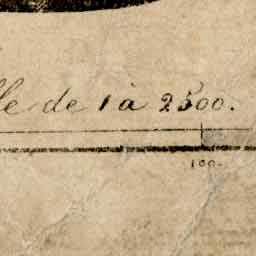 lle de 1 à 2500.
100.